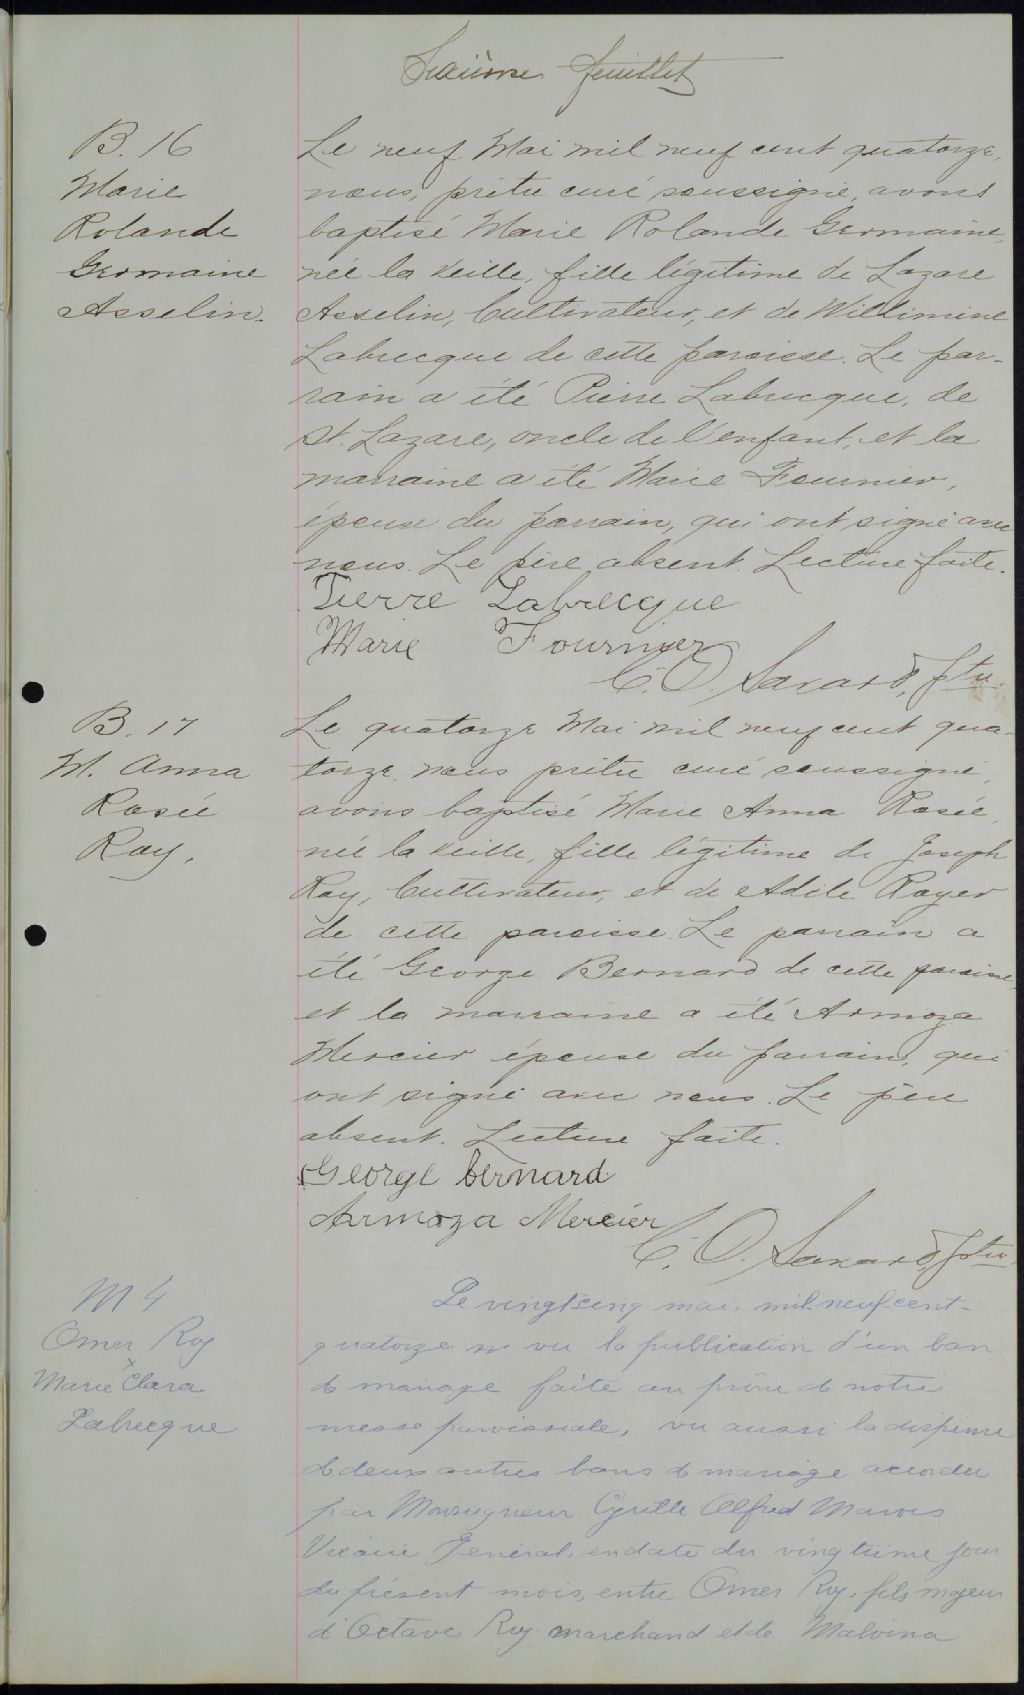 feuillet
B. 16
Marie
Rolande
Germaine
Asselin.
Le neuf Mai mil neuf cent quatorze,
nous, prêtre curé soussigné, avons
baptisé Marie Rolande Germaine,
née la veille, fille légitime de Lazare
Asselin, Cultivateur, et de Willimine
Labrecque de cette paroisse. Le par-
rain a été Pierre Labrecque, de
St. Lazare, oncle de l'enfant, et la
marraine a été Marie Fournier,
épouse du parrain, qui ont signé avec
nous. Le père absent. Lecture faite.
Pierre Labrecque
Marie Fournier
C. O. Savard, Ptre
B. 17
M. Anna
Rosée
Roy.
Le quatorze Mai mil neuf cent qua-
torze, nous prêtre curé soussigné,
avons baptisé Marie Anna Rosée,
née la veille, fille légitime de Joseph
Roy, Cultivateur, et de Adèle Royer
de cette paroisse. Le parrain a
été George Bernard de cette paroisse,
et la marraine a été Armoza
Mercier épouse du parrain, qui
ont signé avec nous. Le père
absent. Lecture faite.
George bernard
Armoza Mercier
C. O. Savard, Ptre
M 4
Omer Roy
x
Marie Clara
Labrecque
Le vingt cinq mai, mil-neuf-cent-
quatorze vu la publication d'un ban
de mariage faite au prône de notre
messe paroissiale, vu aussi la dispense
de deux autres bans de mariage accordée
par Monseigneur Cyrille Alfred Marois
Vicaire Général, en date du vingtième jour
du présent mois, entre Omer Roy, fils majeur
d'Octave Roy marchand et de Malvina